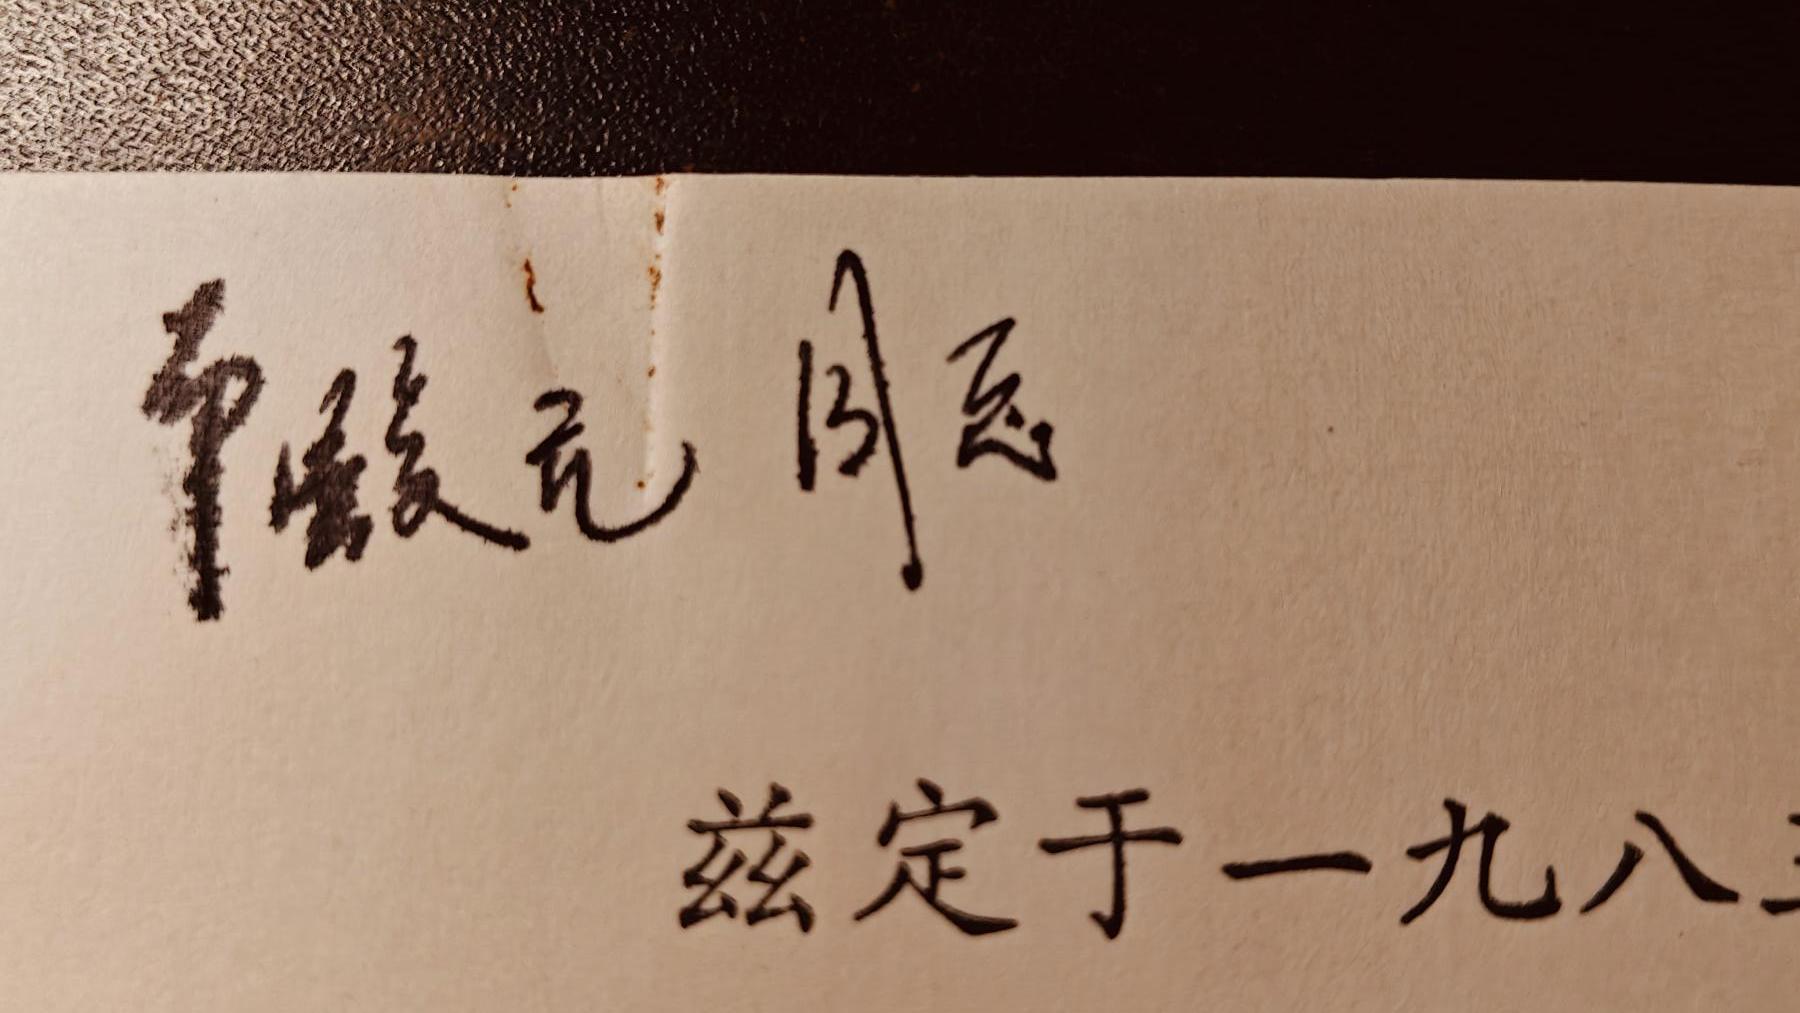 元同志
兹定于一九八